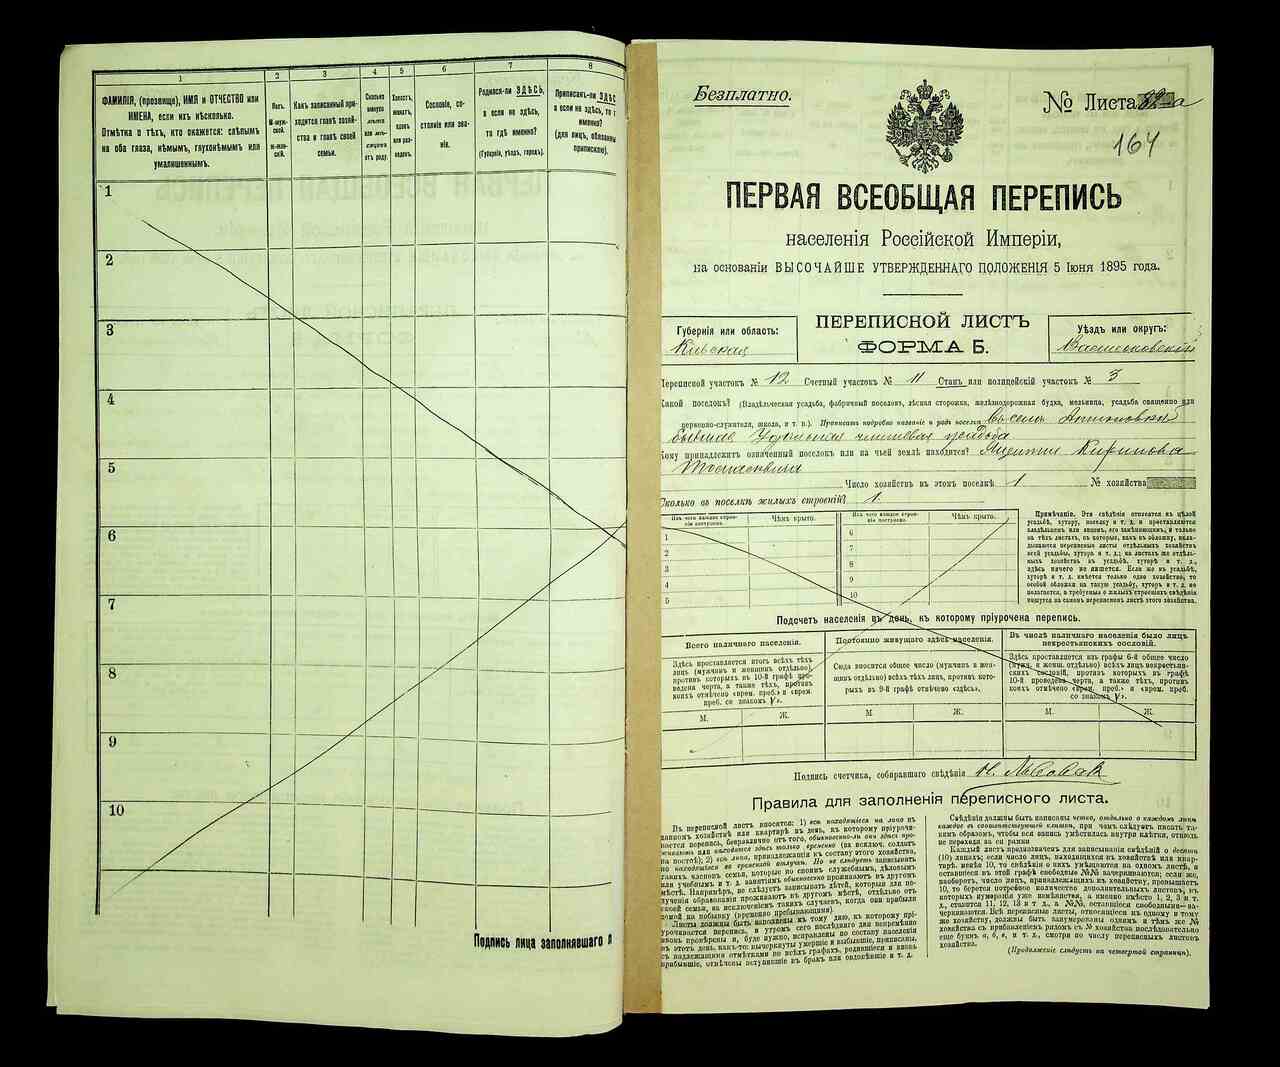 1
2
3
4
5
6
7
8
ФАМИЛІЯ, (прозвище), ИМЯ и ОТЧЕСТВО или
ИМЕНА, если ихъ нѣсколько.
Отмѣтка о тѣхъ, кто окажется: слѣпымъ
на оба глаза, нѣмымъ, глухонѣмымъ или
умалишеннымъ.
Полъ.
М-муж-
ской.
Ж-жен-
скій.
Какъ записанный при-
ходится главѣ хозяй-
ства и главѣ своей
семьи.
Сколько
минуло
лѣтъ
или мѣ-
сяцевъ
отъ роду.
Холостъ,
женатъ,
вдовъ
или раз-
веденъ.
Сословіе, со-
стояніе или зва-
ніе.
Родился-ли ЗДѢСЬ,
а если не здѣсь,
то гдѣ именно?
(Губернія, уѣздъ, городъ).
Приписанъ-ли ЗДѢС
а если не здѣсь, то г
именно?
(для лицъ, обязанны
припискою).
1
2
3
4
5
6
7
8
9
10
Подпись лица заполнявшаго л
Безплатно.
№ Листа
164
ПЕРВАЯ ВСЕОБЩАЯ ПЕРЕПИСЬ
населенія Россійской Имперіи,
на основаніи ВЫСОЧАЙШЕ УТВЕРЖДЕННАГО ПОЛОЖЕНІЯ 5 Іюня 1895 года.
ПЕРЕПИСНОЙ ЛИСТЪ
ФОРМА Б.
Губернія или область:
Кіевская
Уѣздъ или округъ:
Васильковскій
Переписной участокъ № 12 Счетный участокъ № 11 Станъ или полицейскій участокъ № 3
Какой поселокъ? (Владѣльческая усадьба, фабричный поселокъ, лѣсная сторожка, желѣзнодорожная будка, мельница, усадьба священно или
церковно-служителя, школа, и т. п.). Прописать подробно названіе и родъ поселка
бывшая усадьба
Кому принадлежитъ означенный поселокъ или на чьей землѣ находится?
Число хозяйствъ въ этомъ поселкѣ 1 № хозяйства
Сколько въ поселкѣ жилыхъ строеній? 1.
Изъ чего каждое строе-
ніе построено.
Чѣмъ крыто.
Изъ чего каждое строе-
ніе построено.
Чѣмъ крыто.
1
2
3
4
5
6
7
8
9
10
Примѣчаніе. Эти свѣдѣнія относятся къ цѣлой
усадьбѣ, хутору, поселку и т. д. и проставляются
владѣльцемъ или лицомъ, его замѣняющимъ, и только
на тѣхъ листахъ, въ которые, какъ въ обложку, вкла-
дываются переписные листы отдѣльныхъ хозяйствъ
всей усадьбы, хутора и т. д.; на листахъ же отдѣль-
ныхъ хозяйствъ въ усадьбѣ, хуторѣ и т. д.,
здѣсь ничего не пишется. Если же въ усадьбѣ,
хуторѣ и т. д. имѣется только одно хозяйство, то
особой обложки на такую усадьбу, хуторъ и т. д. не
полагается, а требуемыя о жилыхъ строеніяхъ свѣдѣнія
пишутся на самомъ переписномъ листѣ этого хозяйства.
Подсчетъ населенія въ день, къ которому пріурочена перепись.
Всего наличнаго населенія.
Здѣсь проставляется итогъ всѣхъ тѣхъ
лицъ (мужчинъ и женщинъ отдѣльно),
противъ которыхъ въ 10-й графѣ про-
ведена черта, а также тѣхъ, противъ
коихъ отмѣчено «врем. преб.» и «врем.
преб. со знакомъ V».
М. Ж.
Постоянно живущаго здѣсь населенія.
Сюда вносится общее число (мужчинъ и жен-
щинъ отдѣльно) всѣхъ тѣхъ лицъ, противъ кото-
рыхъ въ 9-й графѣ отмѣчено «здѣсь».
М. Ж.
Въ числѣ наличнаго населенія было лицъ
некрестьянскихъ сословій.
Здѣсь проставляется изъ графы 6-й общее число
(мужч. и женщ. отдѣльно) всѣхъ лицъ некрестьян-
скихъ сословій, противъ которыхъ въ графѣ
10-й проведена черта, а также тѣхъ, противъ
коихъ отмѣчено «врем. преб.» и «врем. преб.
со знакомъ V».
М. Ж.
Подпись счетчика, собиравшаго свѣдѣнія
Правила для заполненія переписного листа.
Въ переписной листъ вносятся: 1) всѣ находящіеся на лицо въ
данномъ хозяйствѣ или квартирѣ въ день, къ которому пріурочи-
вается перепись, безразлично отъ того, обыкновенно-ли они здѣсь про-
живаютъ или находятся здѣсь только временно (за исключ. солдатъ
на постоѣ); 2) всѣ лица, принадлежащія къ составу этого хозяйства,
но находящіяся во временной отлучкѣ. Но не слѣдуетъ записывать
такихъ членовъ семьи, которые по своимъ служебнымъ, дѣловымъ
или учебнымъ и т. д. занятіямъ обыкновенно проживаютъ въ другомъ
мѣстѣ. Напримѣръ, не слѣдуетъ записывать дѣтей, которыя для по-
лученія образованія проживаютъ въ другомъ мѣстѣ, отдѣльно отъ
своей семьи, за исключеніемъ такихъ случаевъ, когда они прибыли
домой на побывку (временно пребывающими).
Листы должны быть наполнены къ тому дню, къ которому прі-
урочивается перепись, и утромъ сего послѣдняго дня непремѣнно
вновь провѣрены и, буде нужно, исправлены по составу населенія
въ этотъ день, какъ-то: вычеркнуты умершіе и выбывшіе, приписаны,
съ надлежащими отмѣтками по всѣхъ графахъ, родившіеся и вновь
прибывшіе, отмѣчены вступившіе въ бракъ или овдовѣвшіе и т. д.
Свѣдѣнія должны быть написаны четко, отдѣльно о каждомъ лицѣ
каждое въ соотвѣтствующей клѣткѣ, при чемъ слѣдуетъ писать та-
кимъ образомъ, чтобы вся запись умѣстилась внутри клѣтки, отнюдь
не переходя за ея рамки
Каждый листъ предназначенъ для записыванія свѣдѣній о десяти
(10) лицахъ; если число лицъ, находящихся въ хозяйствѣ или квар-
тирѣ, менѣе 10, то свѣдѣнія о нихъ умѣщаются на одномъ листѣ, а
оставшіеся въ этой графѣ свободные №№ зачеркиваются; если же,
наоборотъ, число лицъ, принадлежащихъ къ хозяйству, превышаетъ
10, то берется потребное количество дополнительныхъ листовъ, въ
которыхъ нумерація уже измѣняется, а именно вмѣсто 1, 2, 3 и т.
д., ставится 11, 12, 13 и т д., а №№, оставшіеся свободными—за-
черкиваются. Всѣ переписные листы, относящіеся къ одному и тому
же хозяйству, должны быть занумерованы однимъ и тѣмъ же №
хозяйства съ прибавленіемъ рядомъ съ № хозяйства послѣдовательно
еще буквъ а, б, в, и т. д., смотря по числу переписныхъ листовъ
хозяйства.
(Продолженіе слѣдуетъ на четвертой страницѣ).